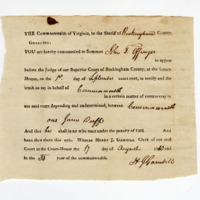 THE Commonwealth of Virginia, to the Sheriff of Rockingham County,
GREETING:
YOU are hereby commanded to Summon
to appear
before the Judge of our Superior Court of Rockingham County, at the Court-
House, on the 1st day of September next, to testify and the
truth to say in behalf of Commonwealth
in a certain matter of controversy in
our said court depending and undetermined, between Commonwealth
and James
And this he shall in no wise omit under the penalty of £
And have then there this writ. Witness HENRY J. GAMBILL Clerk of our said
Court at the Court-House the 17 day of August 18
In the year of the commonwealth.
H J Gambill